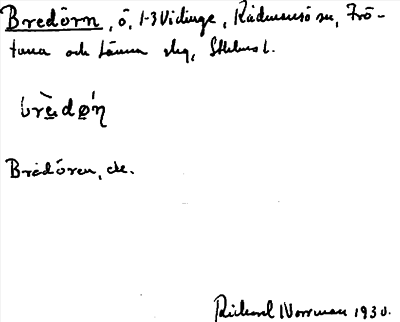 Bredörn, ö, 1-3 Vidinge, Rådmansö sn, Frö-
tuna och Länna slg, Sthlms l.
brèdǿn
Bredören, do.
Rickard Norrman 1930.